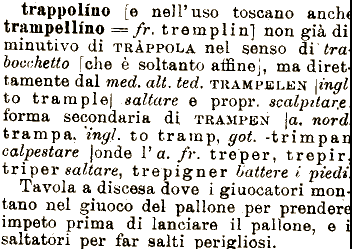 trappolíno [e nell'uso toscano anche
trampellíno = fr. tremplin] non già di
minutivo di TRÀPPOLA nel senso di tra-
bocchetto [che è soltanto affine], ma diret-
tamente dal med. alt. ted. TRAMPELEN [ingl
to trample] saltare e propr. scalpitare,
forma secondaria di TRAMPEN [a. nord.
trampa, ingl. to tramp, got. -trimpan
calpestare [onde l'a. fr. treper, trepir,
triper saltare, trepigner battere i piedi
Tavola a discesa dove i giuocatori mon-
tano nel giuoco del pallone per prendere
impeto prima di lanciare il pallone, e i
saltatori per far salti perigliosi.